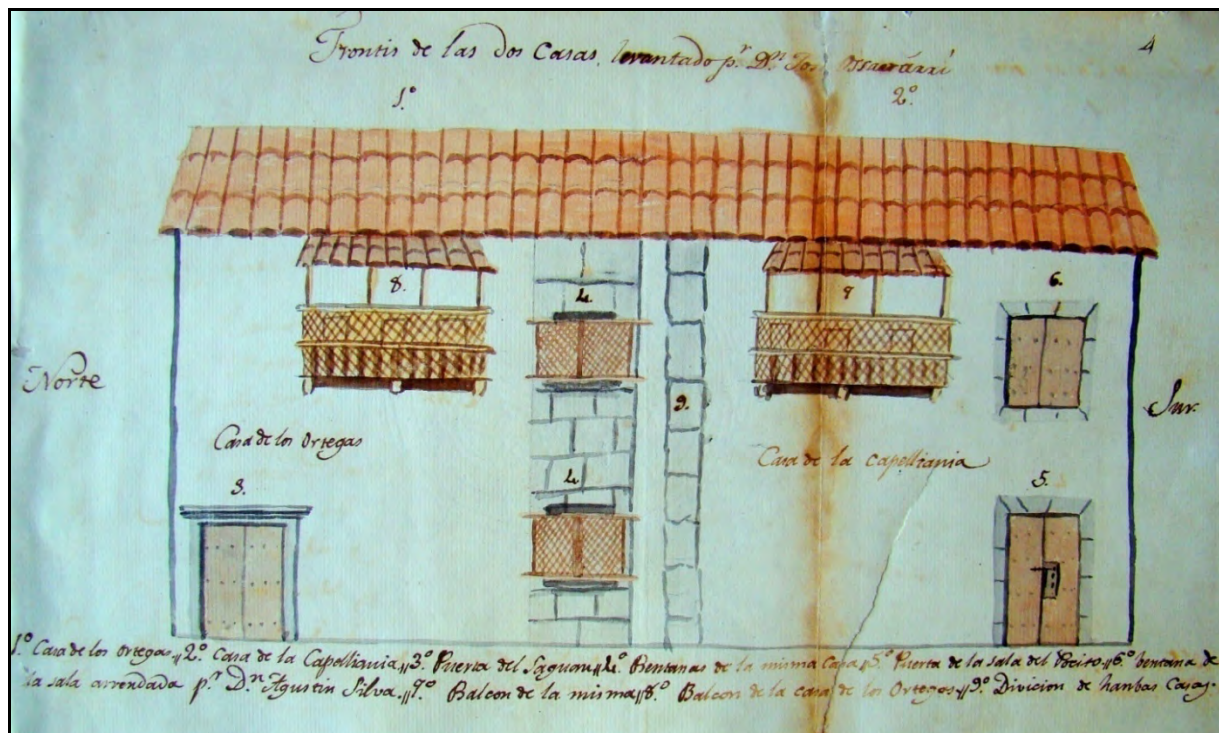 Frontis de las dos Casas, levantado pʳ. Dⁿ
4
1.º
2.º
8.
4
7
6.
9.
Norte
Sur.
Casa de los Ortegas
Casa de la Capelliania
3.
4
5.
1.º Casa de los Ortegas,, 2.º Casa de la Capelliania,, 3º Puerta del Saguan,, 4º Bentanas de la misma Casa,, 5º Puerta de la sala del,, 6º bentana de
la sala arrendada pʳ Dⁿ Agustin Silva.,, 7º Balcon de la misma,, 8º Balcon de la casa de los Ortegas,, 9º Division de hanbas Casas.